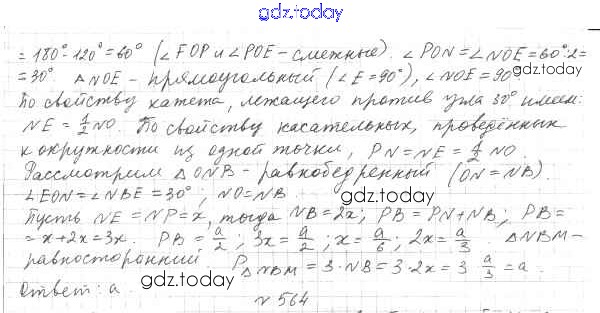 gdz.today
= 180° - 120° = 60° (∠FOP и ∠POE - смежные). ∠PON = ∠NOE = 60° : 2 =
= 30°. △NOE - прямоугольный (∠E = 90°), ∠NOE = 90°
gdz.today
По свойству катета, лежащего против угла 30° имеем:
NE = 1/2 NO. По свойству касательных, проведённых
к окружности из одной точки, PN = NE = 1/2 NO.
Рассмотрим △ONB - равнобедренный (ON = NB).
∠EON = ∠NBE = 30°; NO = NB.
gdz.today
Пусть NE = NP = x, тогда NB = 2x; PB = PN + NB; PB =
= x + 2x = 3x. PB = a/2; 3x = a/2; x = a/6; 2x = a/3. △NBM -
равносторонний. P△NBM = 3 · NB = 3 · 2x = 3 a/3 = a.
gdz.today
Ответ: a.
№ 564
gdz.today